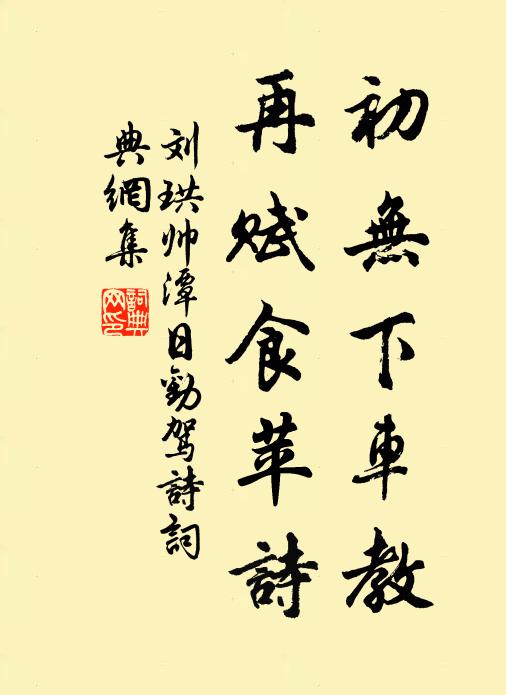 初無下車教
再赋食苹詩
刘珙帅潭日勸駕詩詞
典網集
詞典
网印